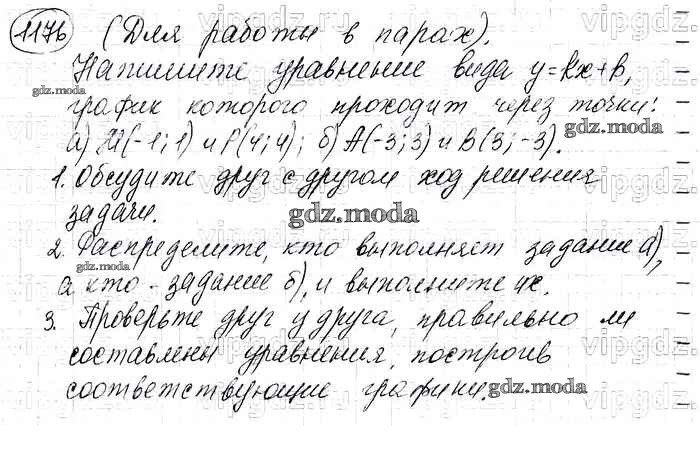 1176 (Для работы в парах).
Напишите уравнение вида y=kx+b,
график которого проходит через точки:
а) M(-1;1) и P(4;4); б) A(-3;3) и B(3;-3).
1. Обсудите друг с другом ход решения
задачи.
2. Распределите, кто выполняет задание а),
а кто - задание б), и выполните их.
3. Проверьте друг у друга, правильно ли
составлены уравнения, построив
соответствующие графики.
gdz.moda
gdz.moda
gdz.moda
gdz.moda
gdz.moda